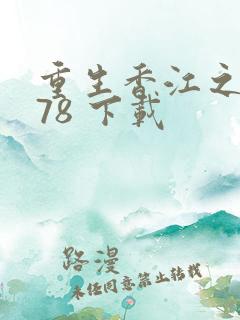 重生香江之
78 下載
路漫
未经同意禁止转载